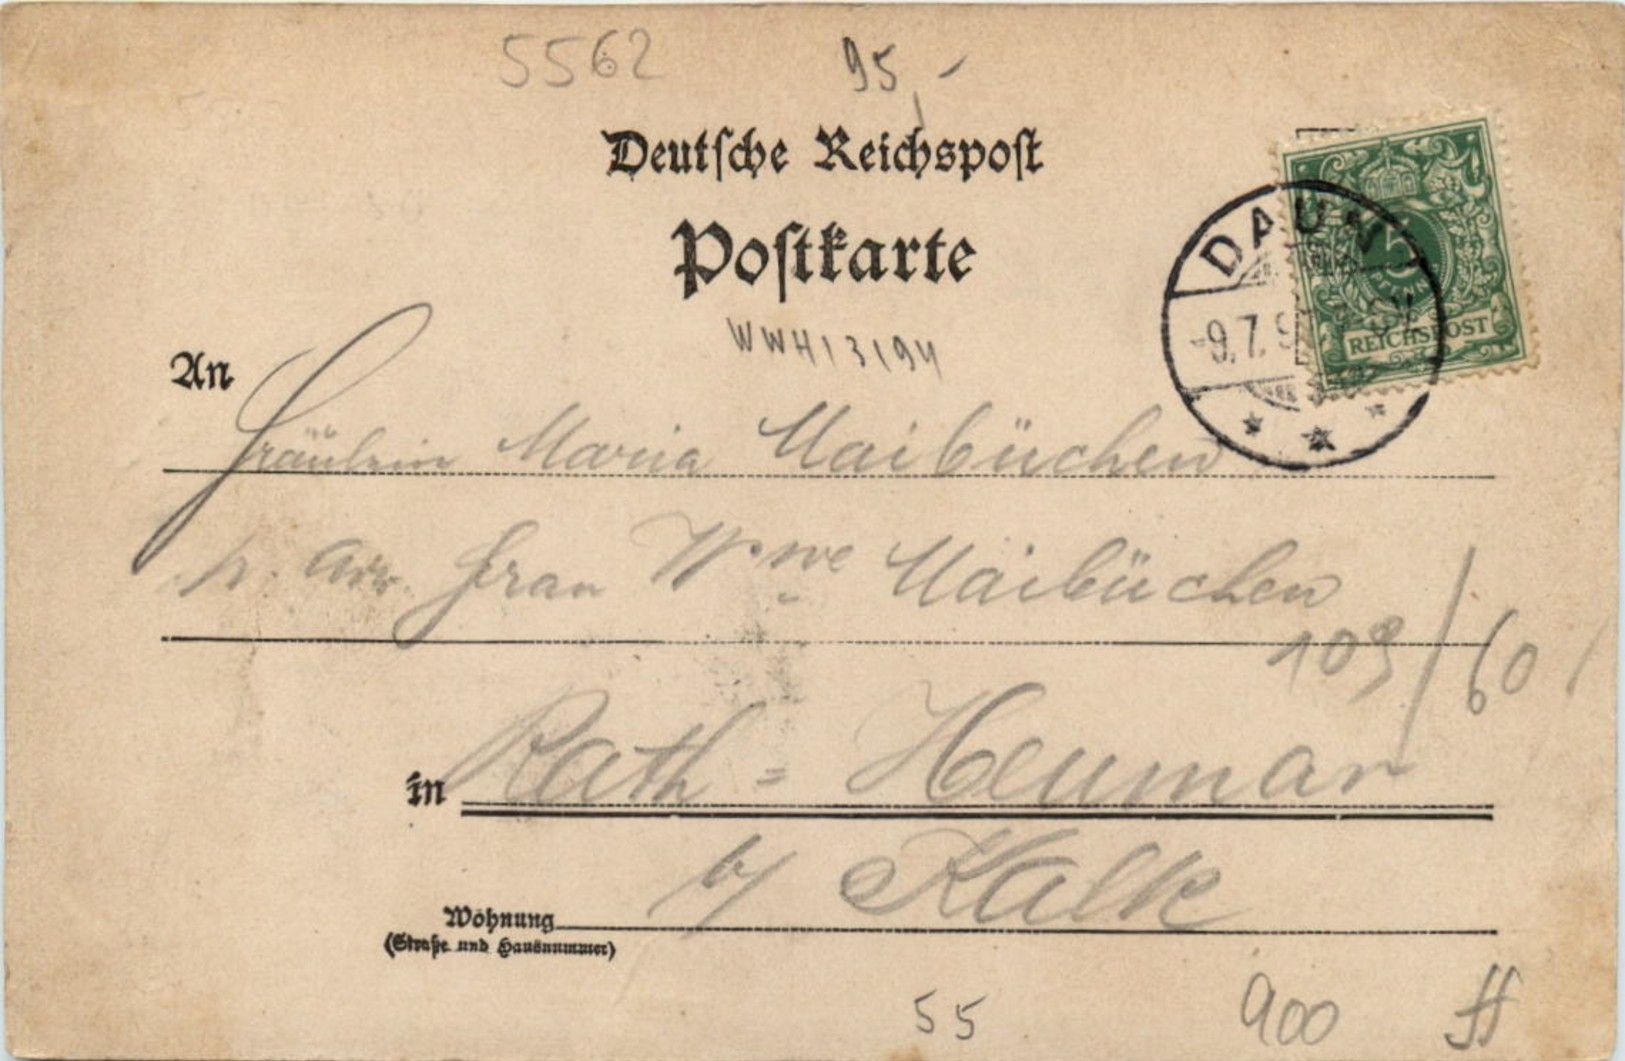 5562 95,-
Deutsche Reichspost
Postkarte
DAUN
5
PFENNIG
REICHSPOST
9.7.9
WWH13194
An
Fräulein Maria Maibüchen
p. Adr. Frau Wwe Maibüchen
109/60
in Rath-Heumar
b/ Kalk
Wohnung
(Straße und Hausnummer)
55 900